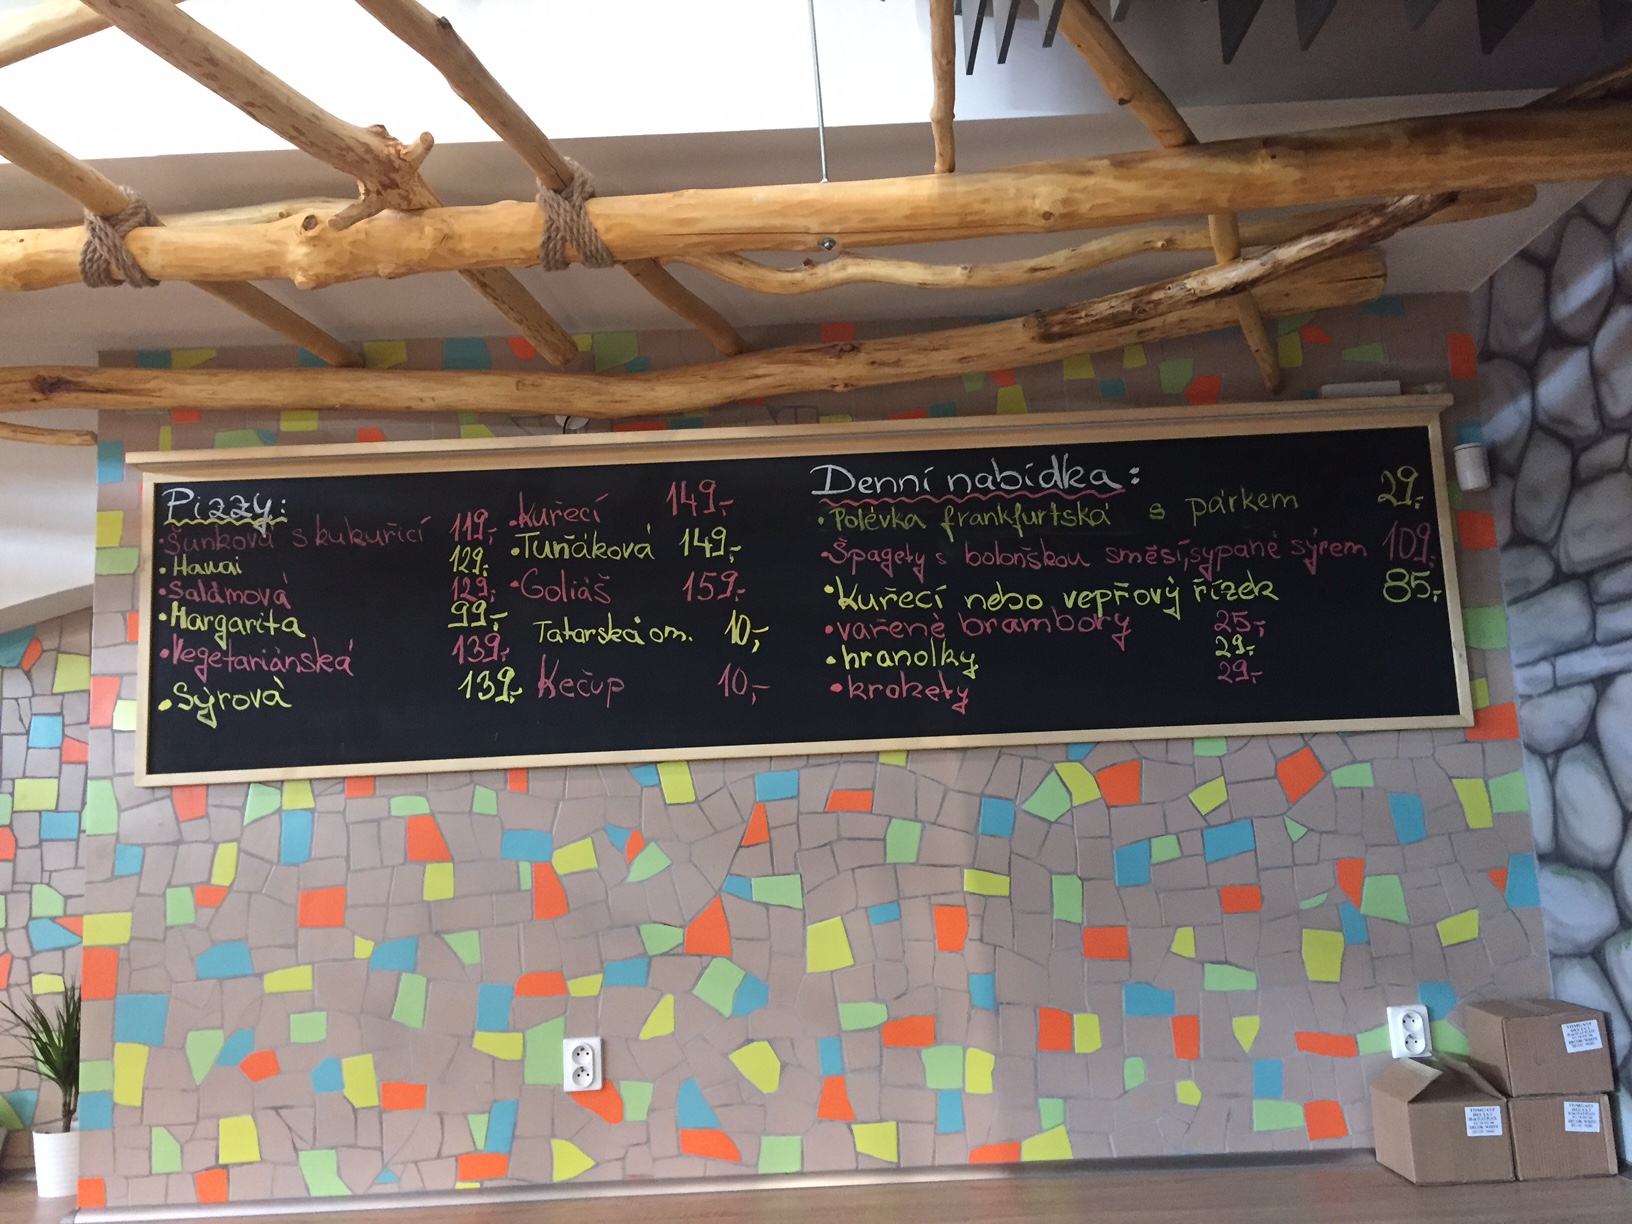 Pizzy:
•Šunková s kukuřicí 119,-
•Hawai 129,-
•Salámová 129,-
•Margarita 99,-
•Vegetariánská 139,-
•Sýrová 139,-
•Kuřecí 149,-
•Tuňáková 149,-
•Goliáš 159,-
Tatarská om. 10,-
Kečup 10,-
Denní nabídka:
•Polévka frankfurtská s párkem 29,-
•Špagety s bolonskou směsí, sypané sýrem 109,-
•Kuřecí nebo vepřový řízek 85,-
•vařené brambory 25,-
•hranolky 29,-
•krokety 29,-